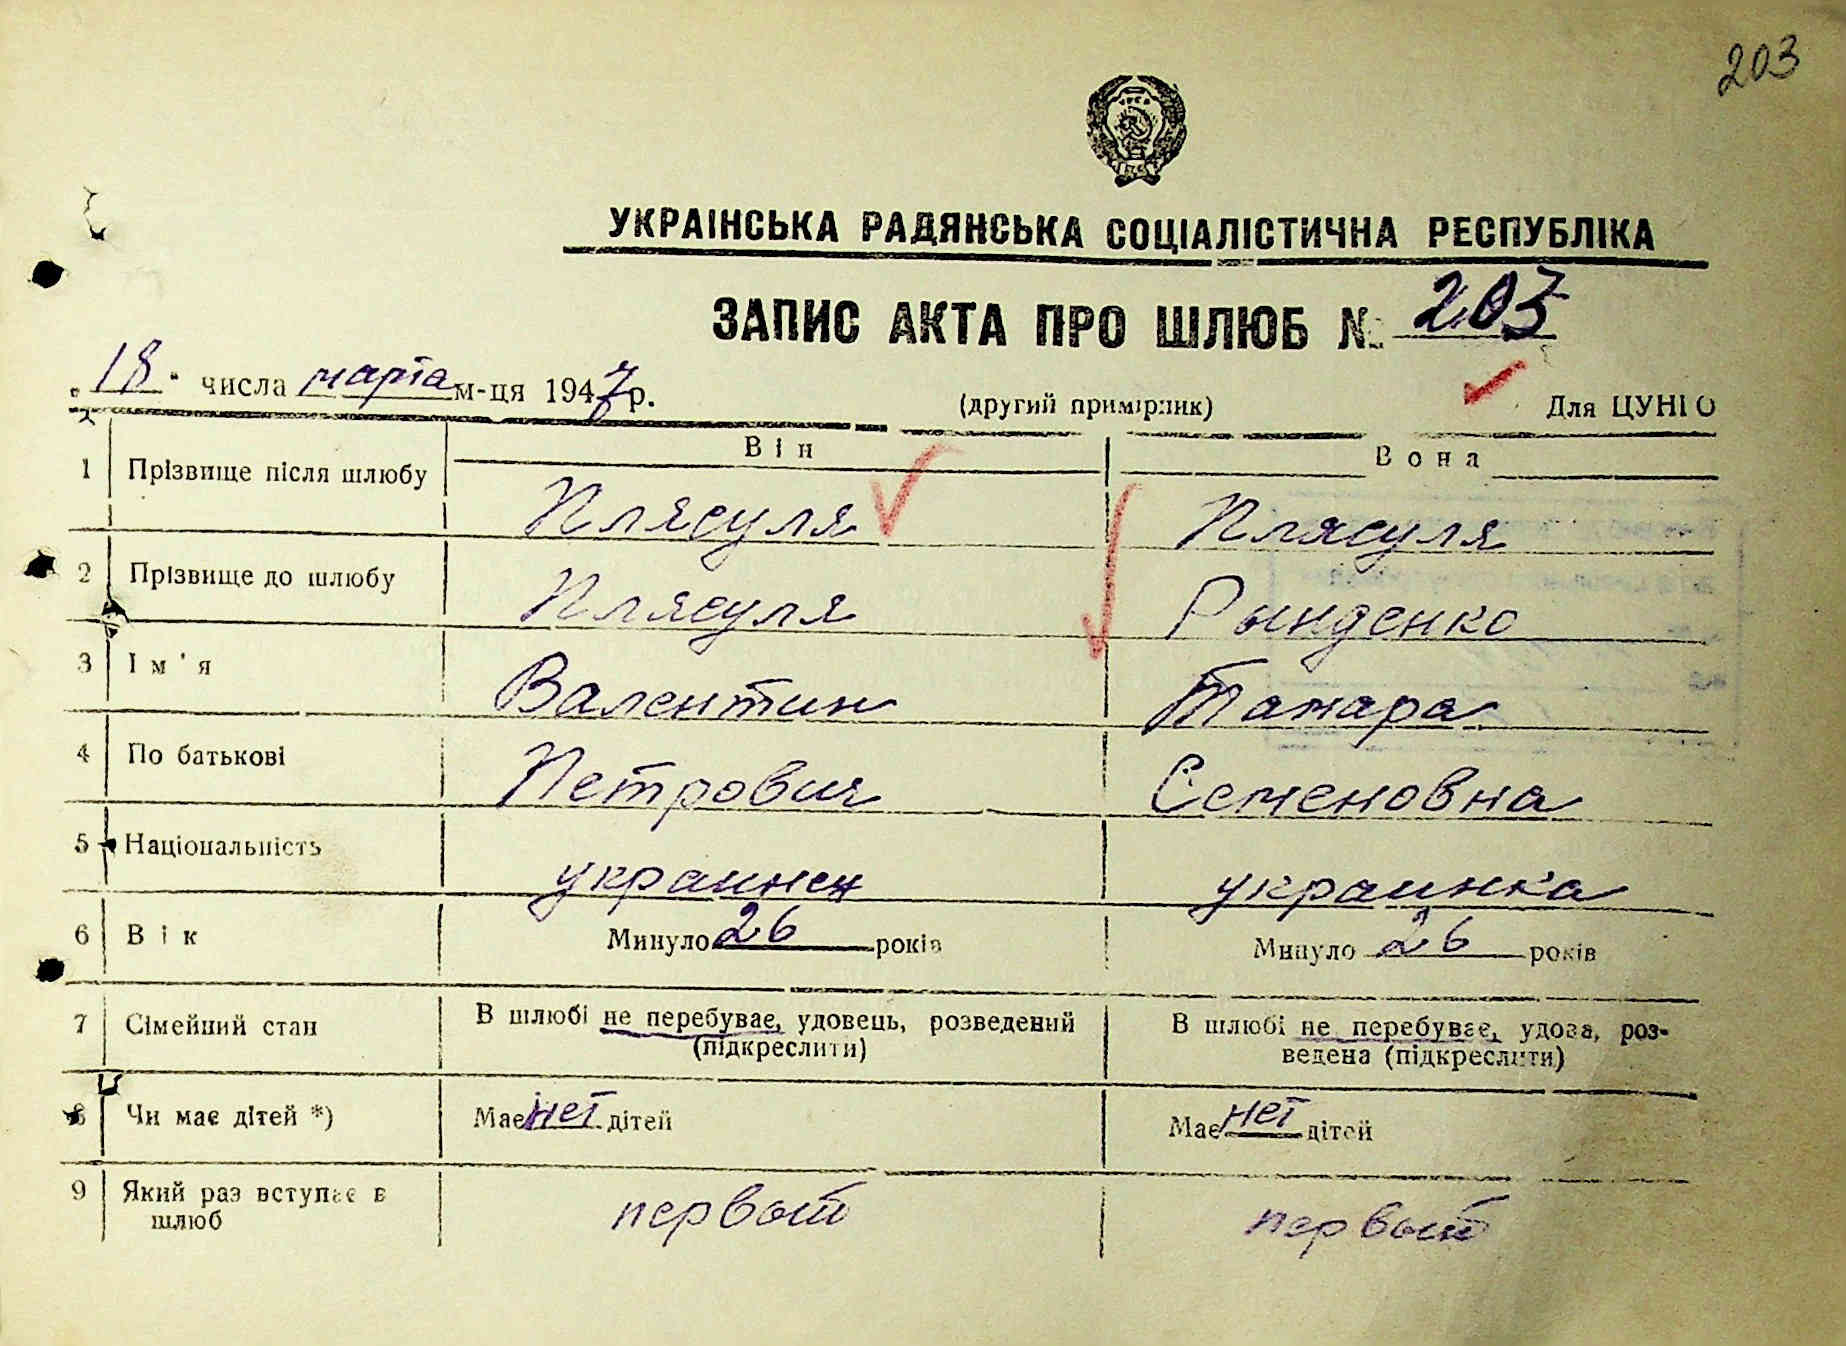 203
УКРАІНСЬКА РАДЯНСЬКА СОЦІАЛІСТИЧНА РЕСПУБЛІКА
ЗАПИС АКТА ПРО ШЛЮБ № 203
„18" числа марта м-ця 1947 р.
(другий примірник)
Для ЦУНГО
Він Вона
1 Прізвище після шлюбу Плясуля Плясуля
2 Прізвище до шлюбу Плясуля Рынденко
3 Ім'я Валентин Тамара
4 По батькові Петрович Семеновна
5 Національність украинец украинка
6 Вік Минуло 26 років Минуло 26 років
7 Сімейний стан В шлюбі не перебуває, удовець, розведений (підкреслити) В шлюбі не перебуває, удова, роз-
ведена (підкреслити)
8 Чи має дітей *) Має нет дітей Має нет дітей
9 Який раз вступає в
шлюб первый первый